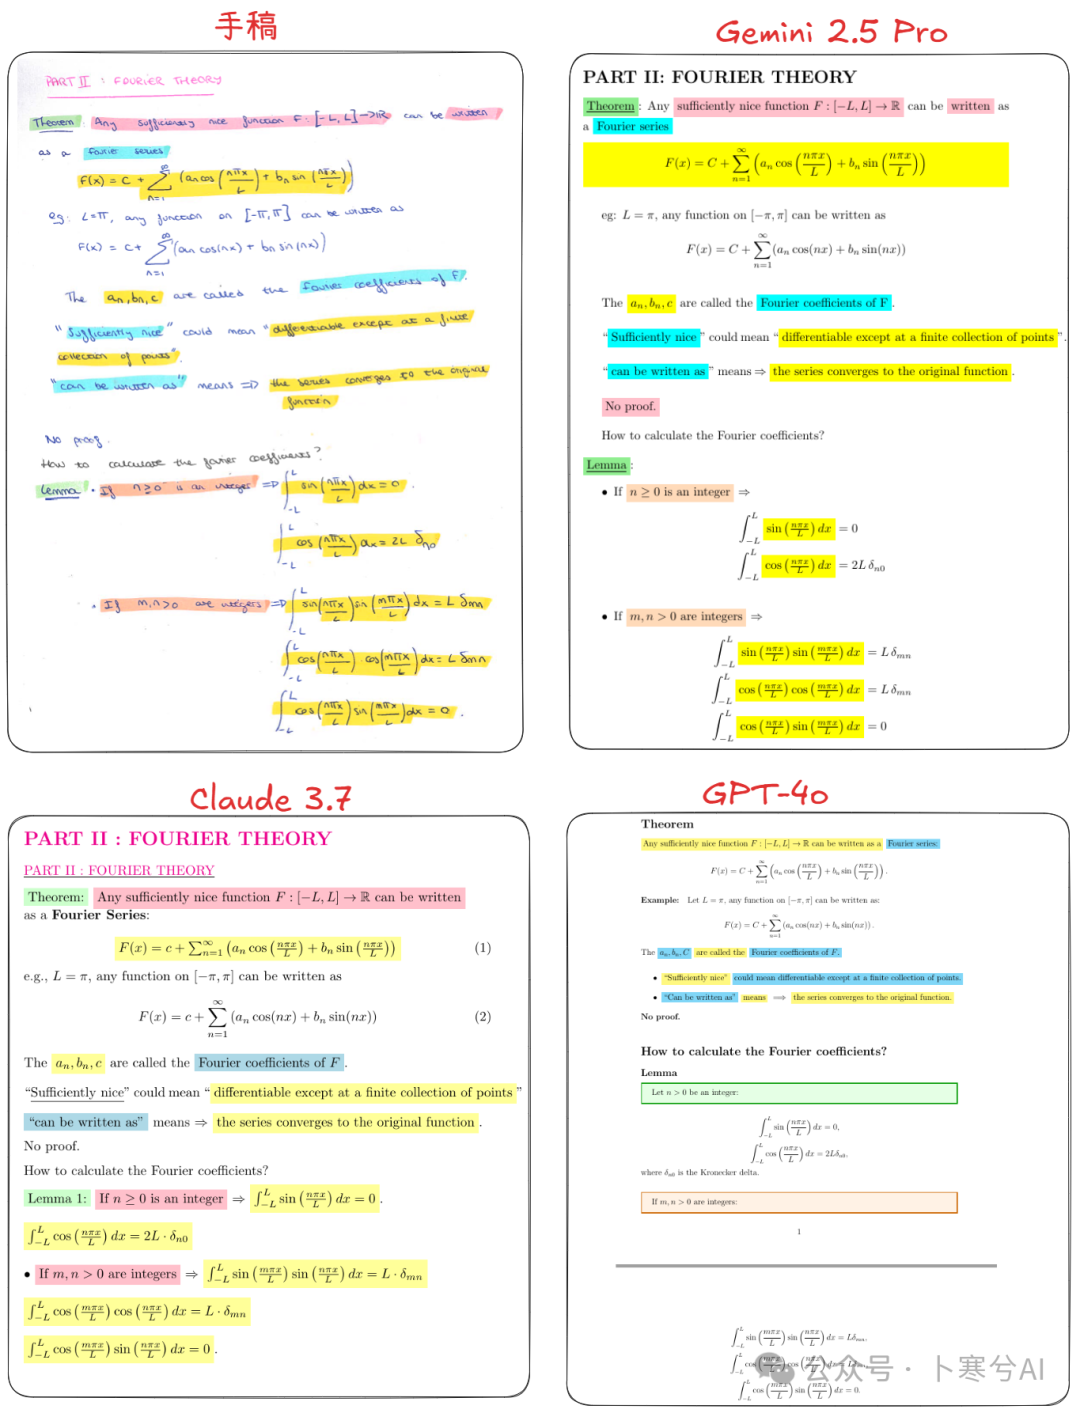 手稿
PART II : FOURIER THEORY
Theorem : Any sufficiently nice function F : [-L, L] → ℝ can be written
as a fourier series
F(x) = C + ∑_{n=1}^{∞} (an cos (nπx/L) + bn sin (nπx/L))
eg: L=π, any function on [-π, π] can be written as
F(x) = C + ∑_{n=1}^{∞} (an cos(nx) + bn sin(nx))
The an, bn, c are called the fourier coefficients of F.
"Sufficiently nice" could mean "differentiable except at a finite
collection of points".
"can be written as" means ⇒ the series converges to the original
function
No proof.
How to calculate the fourier coefficients?
Lemma • If n≥0 is an integer ⇒ ∫_{-L}^{L} sin (nπx/L) dx = 0.
∫_{-L}^{L} cos (nπx/L) dx = 2L δn0
• If m,n>0 are integers ⇒ ∫_{-L}^{L} sin(nπx/L) sin (mπx/L) dx = L δmn
∫_{-L}^{L} cos(nπx/L) · cos(mπx/L) dx = L δmn
∫_{-L}^{L} cos (nπx/L) sin(mπx/L) dx = 0.
Gemini 2.5 Pro
PART II: FOURIER THEORY
Theorem : Any sufficiently nice function F : [−L, L] → ℝ can be written as
a Fourier series
F(x) = C + ∑_{n=1}^{∞} (a_n cos (nπx/L) + b_n sin (nπx/L))
eg: L = π, any function on [−π, π] can be written as
F(x) = C + ∑_{n=1}^{∞} (a_n cos(nx) + b_n sin(nx))
The a_n, b_n, c are called the Fourier coefficients of F .
“ Sufficiently nice ” could mean “ differentiable except at a finite collection of points ”.
“ can be written as ” means ⇒ the series converges to the original function .
No proof.
How to calculate the Fourier coefficients?
Lemma :
• If n ≥ 0 is an integer ⇒
∫_{−L}^{L} sin (nπx/L) dx = 0
∫_{−L}^{L} cos (nπx/L) dx = 2L δ_{n0}
• If m, n > 0 are integers ⇒
∫_{−L}^{L} sin (nπx/L) sin (mπx/L) dx = L δ_{mn}
∫_{−L}^{L} cos (nπx/L) cos (mπx/L) dx = L δ_{mn}
∫_{−L}^{L} cos (nπx/L) sin (mπx/L) dx = 0
Claude 3.7
PART II : FOURIER THEORY
PART II : FOURIER THEORY
Theorem: Any sufficiently nice function F : [−L, L] → ℝ can be written
as a Fourier Series:
F(x) = c + ∑_{n=1}^{∞} (a_n cos (nπx/L) + b_n sin (nπx/L)) (1)
e.g., L = π, any function on [−π, π] can be written as
F(x) = c + ∑_{n=1}^{∞} (a_n cos(nx) + b_n sin(nx)) (2)
The a_n, b_n, c are called the Fourier coefficients of F .
“Sufficiently nice” could mean “ differentiable except at a finite collection of points ”
“can be written as” means ⇒ the series converges to the original function .
No proof.
How to calculate the Fourier coefficients?
Lemma 1: If n ≥ 0 is an integer ⇒ ∫_{−L}^{L} sin (nπx/L) dx = 0 .
∫_{−L}^{L} cos (nπx/L) dx = 2L · δ_{n0}
• If m, n > 0 are integers ⇒ ∫_{−L}^{L} sin (mπx/L) sin (nπx/L) dx = L · δ_{mn}
∫_{−L}^{L} cos (mπx/L) cos (nπx/L) dx = L · δ_{mn}
∫_{−L}^{L} cos (mπx/L) sin (nπx/L) dx = 0 .
GPT-4o
Theorem
Any sufficiently nice function F : [−L, L] → ℝ can be written as a Fourier series:
F(x) = C + ∑_{n=1}^{∞} (a_n cos (nπx/L) + b_n sin (nπx/L)) .
Example: Let L = π, any function on [−π, π] can be written as:
F(x) = C + ∑_{n=1}^{∞} (a_n cos(nx) + b_n sin(nx)) .
The a_n, b_n, C are called the Fourier coefficients of F.
• “Sufficiently nice” could mean differentiable except at a finite collection of points.
• “Can be written as” means ⟹ the series converges to the original function.
No proof.
How to calculate the Fourier coefficients?
Lemma
Let n > 0 be an integer:
∫_{−L}^{L} sin (nπx/L) dx = 0,
∫_{−L}^{L} cos (nπx/L) dx = 2Lδ_{n0},
where δ_{n0} is the Kronecker delta.
If m, n > 0 are integers:
1
∫_{−L}^{L} sin (mπx/L) sin (nπx/L) dx = Lδ_{mn},
∫_{−L}^{L} cos (mπx/L) cos (nπx/L) dx = Lδ_{mn},
∫_{−L}^{L} cos (mπx/L) sin (nπx/L) dx = 0.
公众号 · 卜寒兮AI